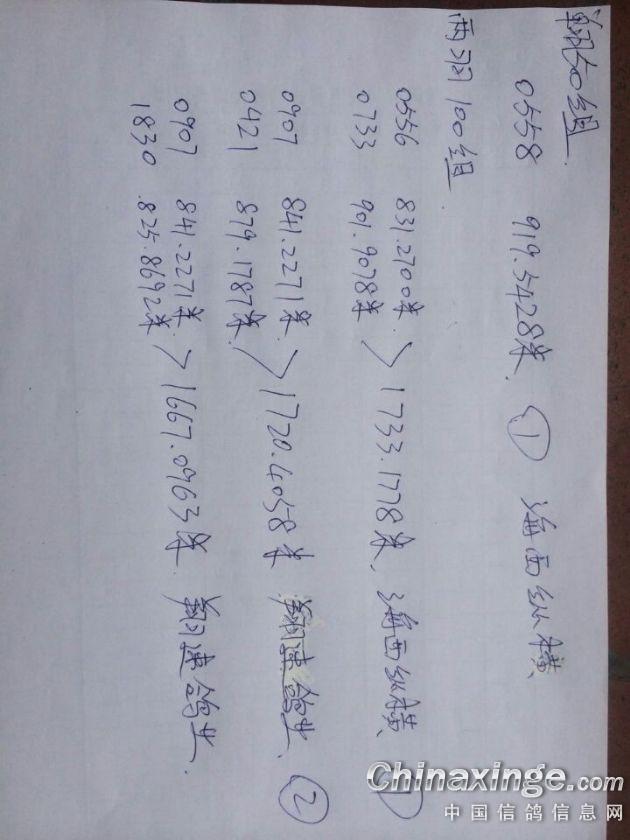 单羽50组
0558 919.5428米. ① 海西纵横
两羽100组
0556 831.2700米
0733 901.9078米 > 1733.1778米. 海西纵横 ①
0907 841.2271米
0421 879.1787米 > 1720.4058米 翔速鸽业. ②
0907 841.2271米
1830 825.8692米 > 1667.0963米. 翔速鸽业.
Chinaxinge.com
中国信鸽信息网